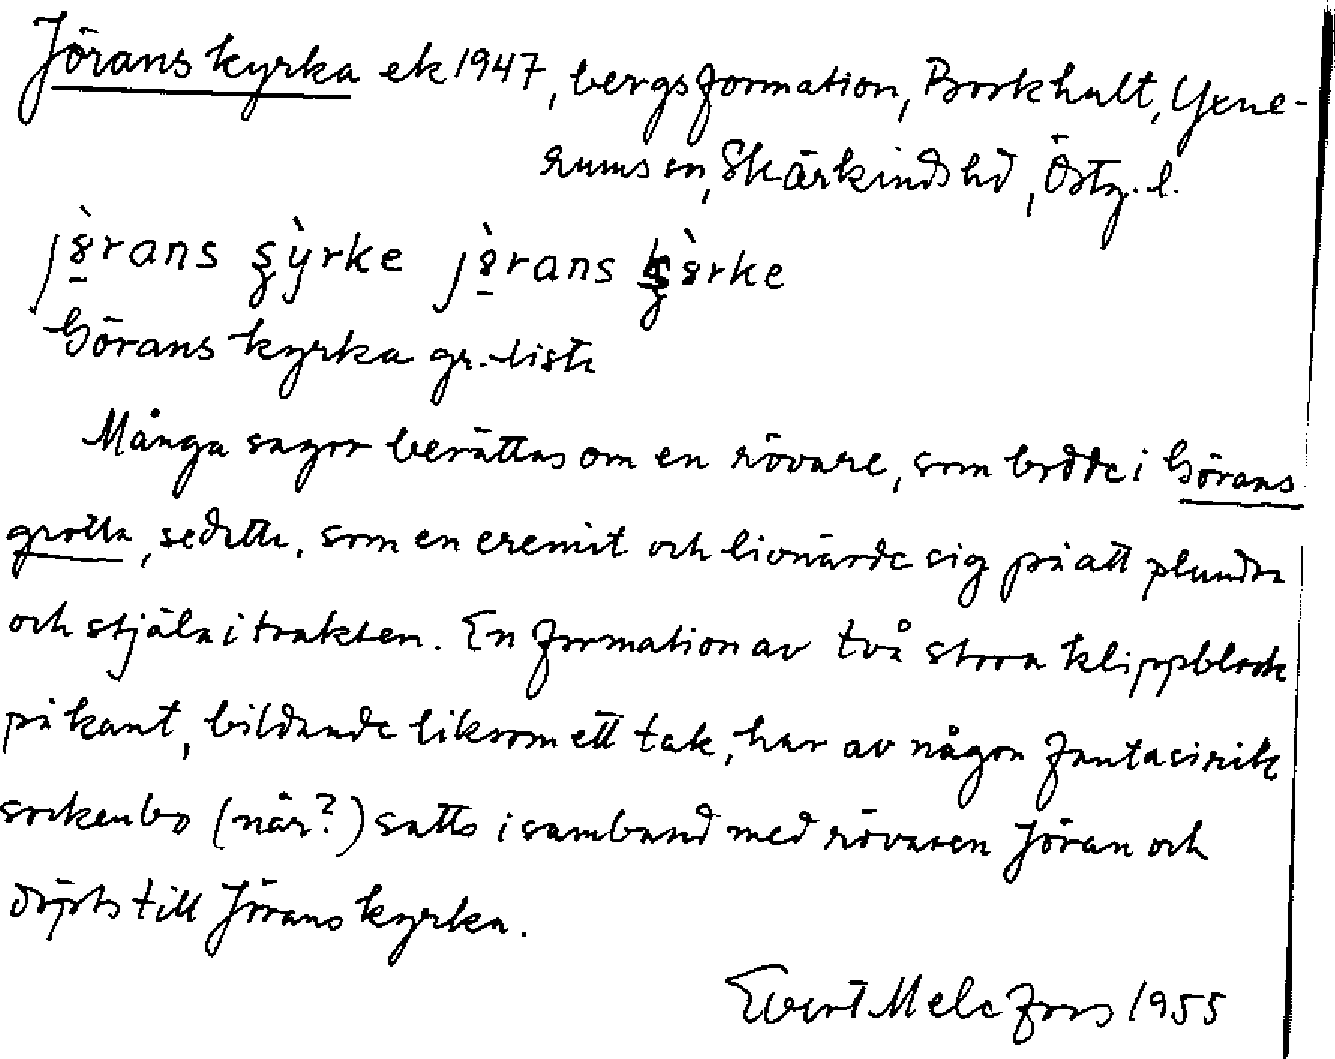 Jörans kyrka ek 1947, bergsformation, Borkhult, Yxne-
rums sn, Skärkinds hd, Östg. l.
jö̀rans kyrka gr.-liste
Görans kyrka gr.-liste
Många sagor berättas om en rövare, som bodde i Görans
grotta, se detta, som en eremit och livnärde sig på att plundra
och stjäla i trakten. En formation av två stora klippblock
på kant, bildande liksom ett tak, har av någon fantasirik
sockenbo (når?) satts i samband med rövaren Jöran och
döpts till Jörans kyrka.
Evert Melefors 1955